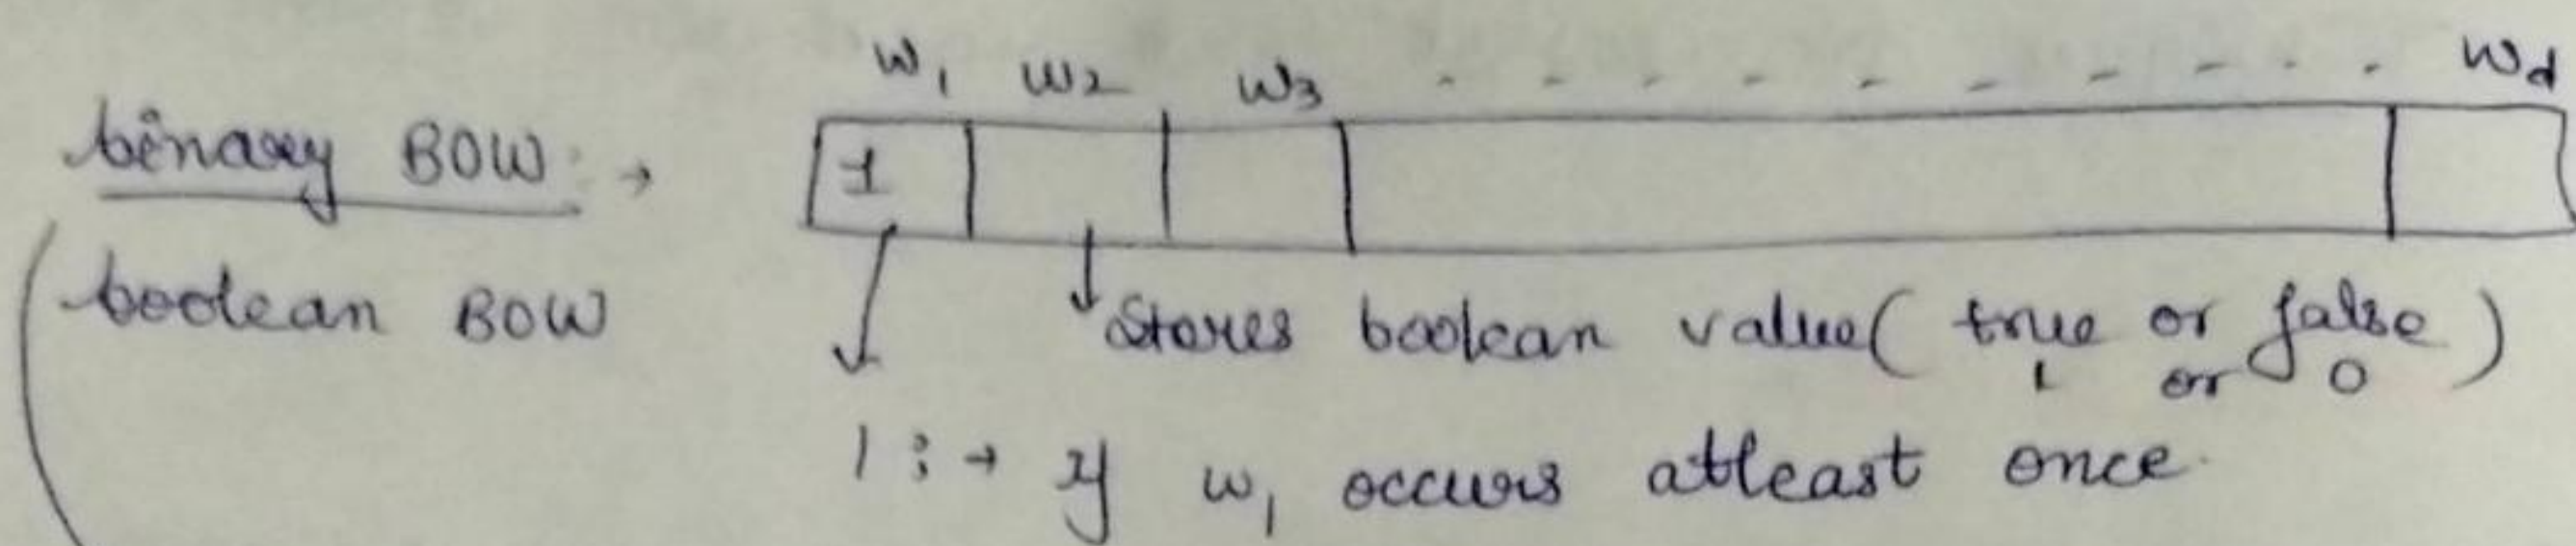 w1 w2 w3 - - - - - - - - - - wd
binary BOW : → 1
boolean BOW
Stores boolean value ( true or false )
1 or 0
1 : → if w1 occurs atleast once.